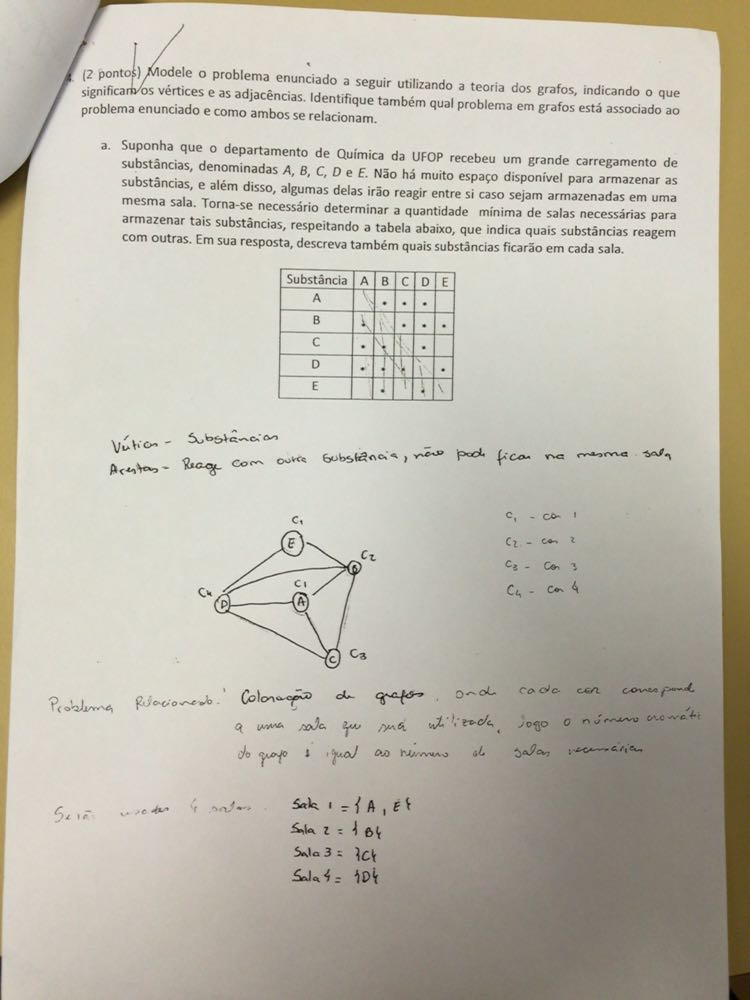 4. (2 pontos) Modele o problema enunciado a seguir utilizando a teoria dos grafos, indicando o que
significam os vértices e as adjacências. Identifique também qual problema em grafos está associado ao
problema enunciado e como ambos se relacionam.
a. Suponha que o departamento de Química da UFOP recebeu um grande carregamento de
substâncias, denominadas A, B, C, D e E. Não há muito espaço disponível para armazenar as
substâncias, e além disso, algumas delas irão reagir entre si caso sejam armazenadas em uma
mesma sala. Torna-se necessário determinar a quantidade mínima de salas necessárias para
armazenar tais substâncias, respeitando a tabela abaixo, que indica quais substâncias reagem
com outras. Em sua resposta, descreva também quais substâncias ficarão em cada sala.
Substância A B C D E
A • • •
B • • • •
C • • •
D • • • •
E • •
Vértices - Substâncias
Arestas - Reage com outra substância, não pode ficar na mesma sala
C1
E
C2
B
C4
D
C1
A
C
C3
C1 - cor 1
C2 - cor 2
C3 - cor 3
C4 - cor 4
Problema Relacionado: Coloração de grafos, onde cada cor corresponde
a uma sala que será utilizada, logo o número cromáti
do grafo é igual ao número de salas necessárias
Serão usadas 4 salas. Sala 1 = {A, E}
Sala 2 = {B}
Sala 3 = {C}
Sala 4 = {D}